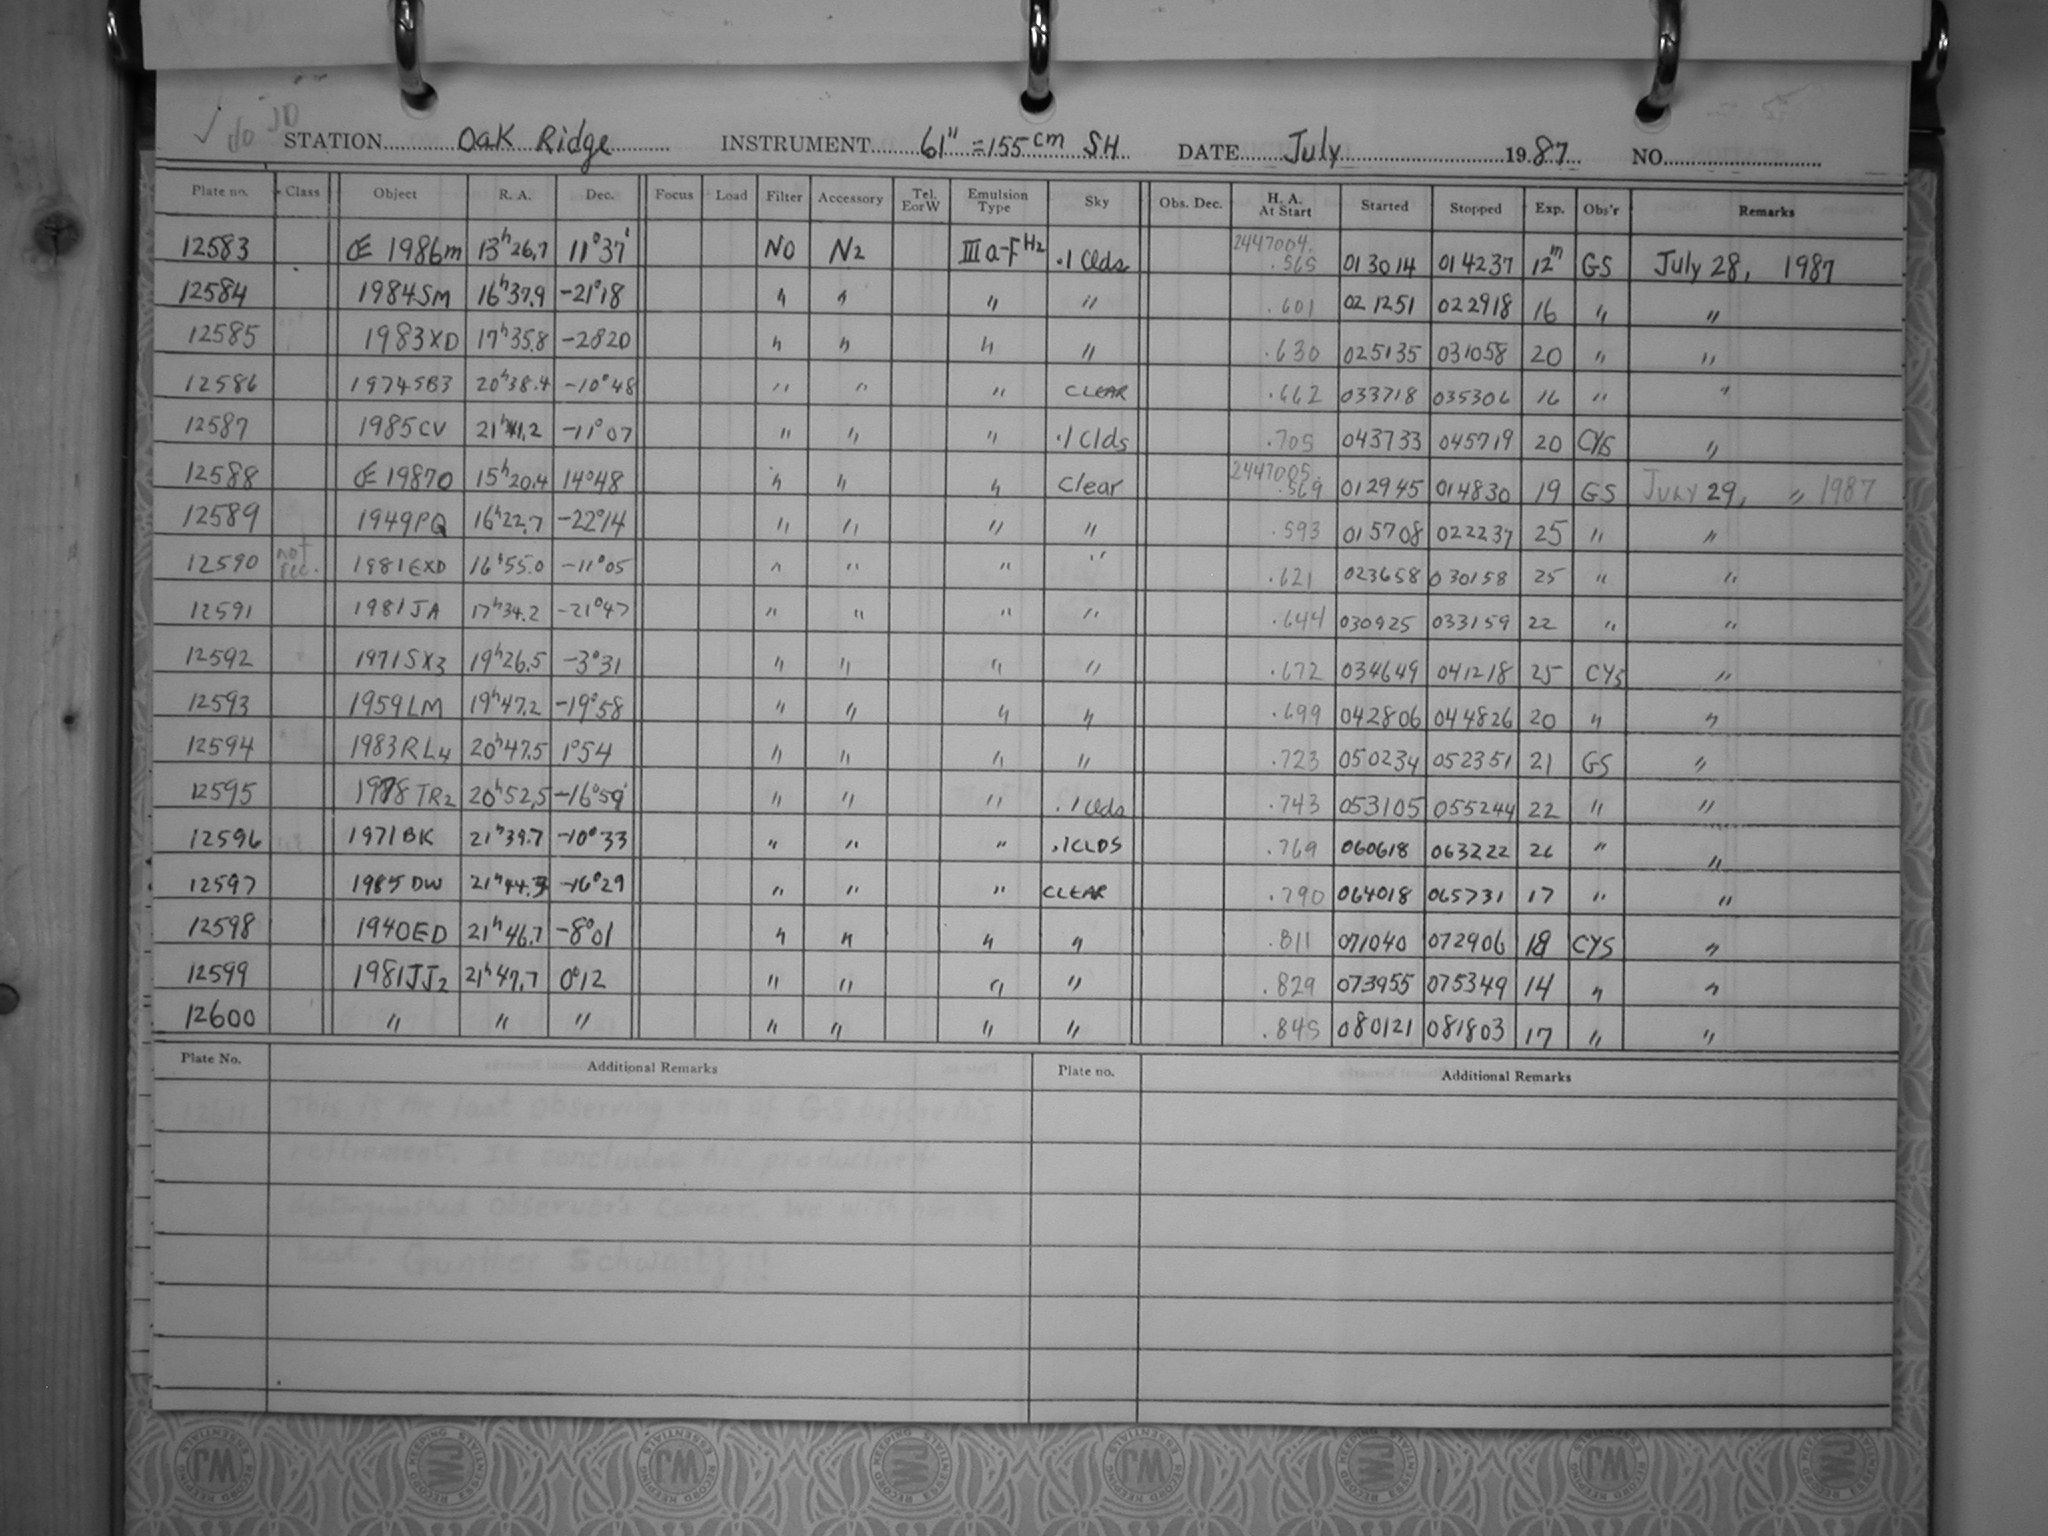 STATION Oak Ridge INSTRUMENT 61" = 155 cm SH DATE July 1987 NO.
Plate no. Class Object R. A. Dec. Focus Load Filter Accessory Tel. E or W Emulsion Type Sky Obs. Dec. H. A. At Start Started Stopped Exp. Obs'r Remarks
12583 Œ 1986m 13ʰ26.7 11°37' NO N2 IIIa-F H2 .1 Clds 2447004. .565 013014 014237 12ᵐ GS July 28, 1987
12584 1984SM 16ʰ37.9 -21°18 " " " " .601 021251 022918 16 " "
12585 1983XD 17ʰ35.8 -2820 " " " " .630 025135 031058 20 " "
12586 1974SB3 20ʰ38.4 -10°48 " " " CLEAR .662 033718 035306 16 " "
12587 1985CV 21ʰ41.2 -11°07 " " " .1 Clds .705 043733 045719 20 CYS "
12588 Œ 1987O 15ʰ20.4 14°48 " " " Clear 2447005. .569 012945 014830 19 GS JULY 29, " 1987
12589 1949PQ 16ʰ22.7 -22°14 " " " " .593 015708 022237 25 " "
12590 not rec. 1981EXD 16ʰ55.0 -11°05 " " " " .621 023658 030158 25 " "
12591 1981JA 17ʰ34.2 -21°47 " " " " .644 030925 033159 22 " "
12592 1971SX3 19ʰ26.5 -3°31 " " " " .672 034649 041218 25 CYS "
12593 1959LM 19ʰ47.2 -19°58 " " " " .699 042806 044826 20 " "
12594 1983RL4 20ʰ47.5 1°54 " " " " .723 050234 052351 21 GS "
12595 1978TR2 20ʰ52.5 -16°59' " " " .1 Clds .743 053105 055244 22 " "
12596 1971BK 21ʰ39.7 -10°33 " " " .1CLDS .769 060618 063222 26 " "
12597 1985DW 21ʰ44.3 -16°29 " " " CLEAR .790 064018 065731 17 " "
12598 1940ED 21ʰ46.7 -8°01 " " " " .811 071040 072906 18 CYS "
12599 1981JJ2 21ʰ47.7 0°12 " " " " .829 073955 075349 14 " "
12600 " " " " " " " .845 080121 081803 17 " "
Plate No. Additional Remarks Plate no. Additional Remarks